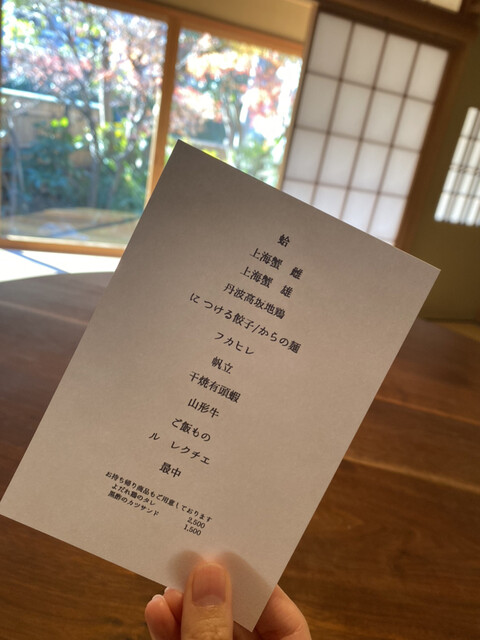 蛤
上海蟹 雌
上海蟹 雄
丹波高坂地鶏
に つける餃子/からの麺
フカヒレ
帆立
干焼有頭蝦
山形牛
ご飯もの
ル レクチエ
最中
お持ち帰り商品もご用意しております
よだれ鶏のタレ 2,500
黒酢のカツサンド 1,500